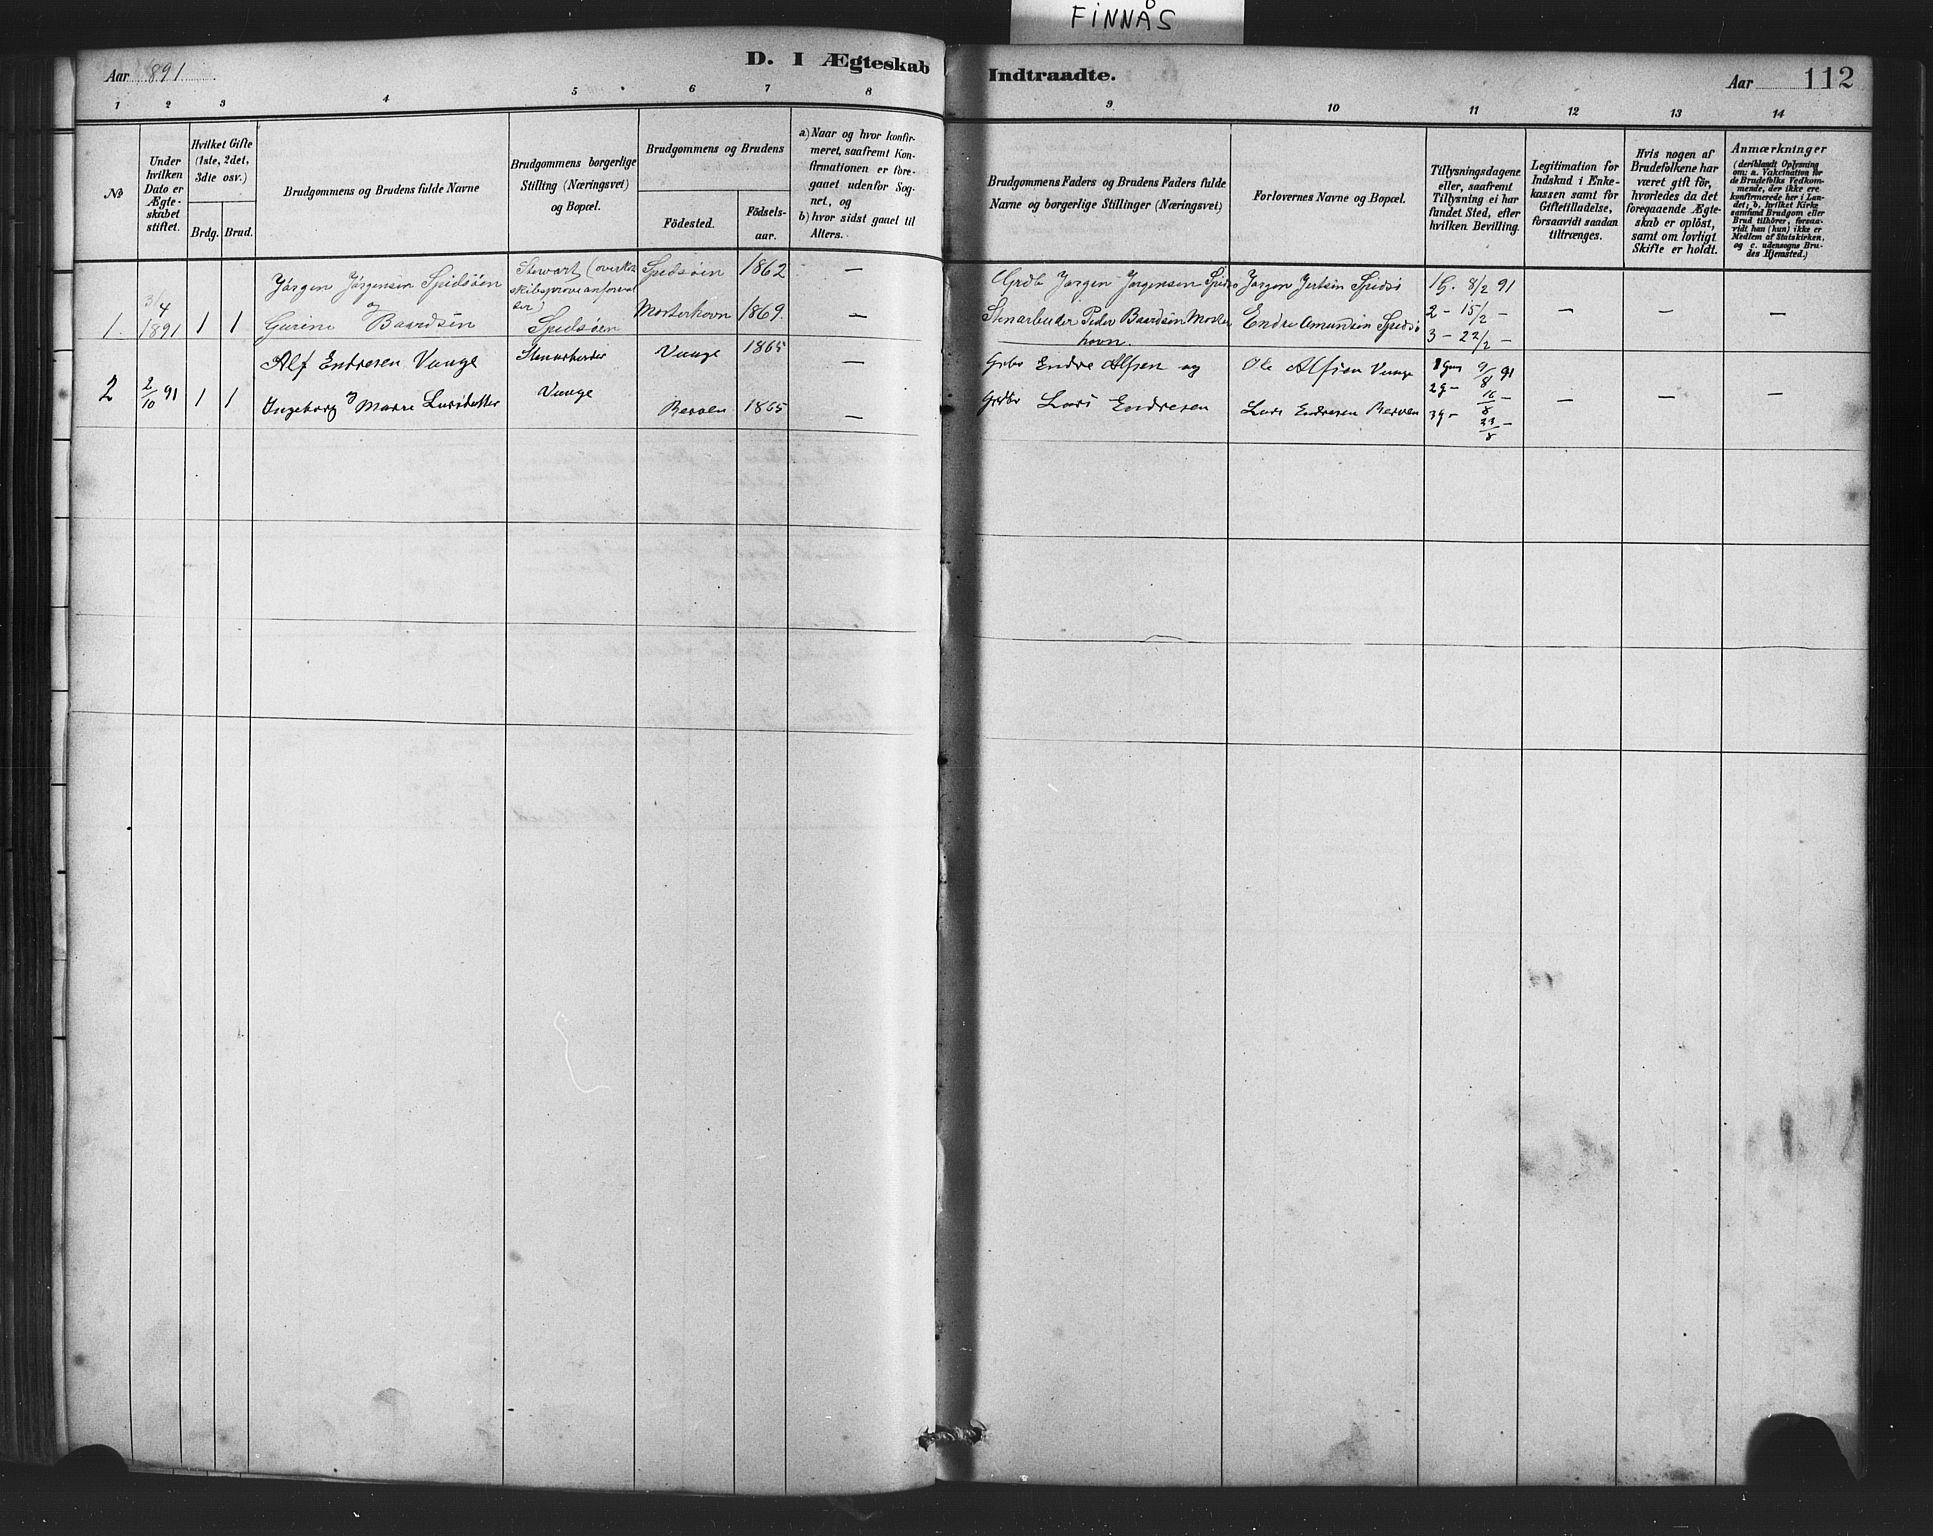 FINNÅS
Aar 891
D. I Ægteskab
Indtraadte.
Aar
112
1 2 3 4 5 6 7 8
9 10 11 12 13 14
№
Under hvilken Dato er Ægteskabet stiftet.
Hvilket Gifte (1ste, 2det, 3die osv.)
Brdg. Brud.
Brudgommens og Brudens fulde Navne
Brudgommens borgerlige Stilling (Næringsvei) og Bopæl.
Brudgommens og Brudens
Födested.
Födsels-aar.
a) Naar og hvor konfirmeret, saafremt Konfirmationen er foregaaet udenfor Sognet, og
b) hvor sidst gaaet til Alters.
Brudgommens Faders og Brudens Faders fulde Navne og borgerlige Stillinger (Næringsvei)
Forlovernes Navne og Bopæl.
Tillysningsdagene eller, saafremt Tillysning ei har fundet Sted, efter hvilken Bevilling.
Legitimation for Indskud i Enkekassen samt for Giftetilladelse, forsaavidt saadan tiltrænges.
Hvis nogen af Brudefolkene har været gift för, hvorledes da det foregaaende Ægteskab er oplöst, samt om lovligt Skifte er holdt.
Anmærkninger
(deriblandt Oplysning om: a. Vaksination for de Brudefolks Vedkommende, der ikke ere konfirmerede her i Landet; b. hvilket Kirkesamfund Brudgom eller Brud tilhörer, forsaavidt han (hun) ikke er Medlem af Statskirken, og c. udensogns Brudes Hjemsted.)
1. 3/4 1891 1 1
Jørgen Jørgensen Spidsøen
og
Gurine Baardsen
Stewart (overkok skibsproviantforvalter)
Spidsøen
Spidsøen 1862 —
Mosterhovn 1869. —
Grdb Jørgen Jørgensen Spidsø
Stenarbeider Peder Baardsen Mosterhovn.
Jørgen Jertsin Spidsø
Endre Amundsen Spidsø
1 G. 8/2 91
2 — 15/2 —
3 — 22/2 —
— — —
2 2/10 91 1 1
Alf Endresen Vange
og
Ingeborg Marie Larsdatter
Stenarbeider
Vange
Vange 1865 —
Berven 1865 —
Grbr Endre Alfsen og
Grdbr Lars Endresen
Ole Alfsen Vange
Lars Endresen Berven
1 Gang 9/8 91
2 g — 16/8 —
3 g — 23/8 —
— — —